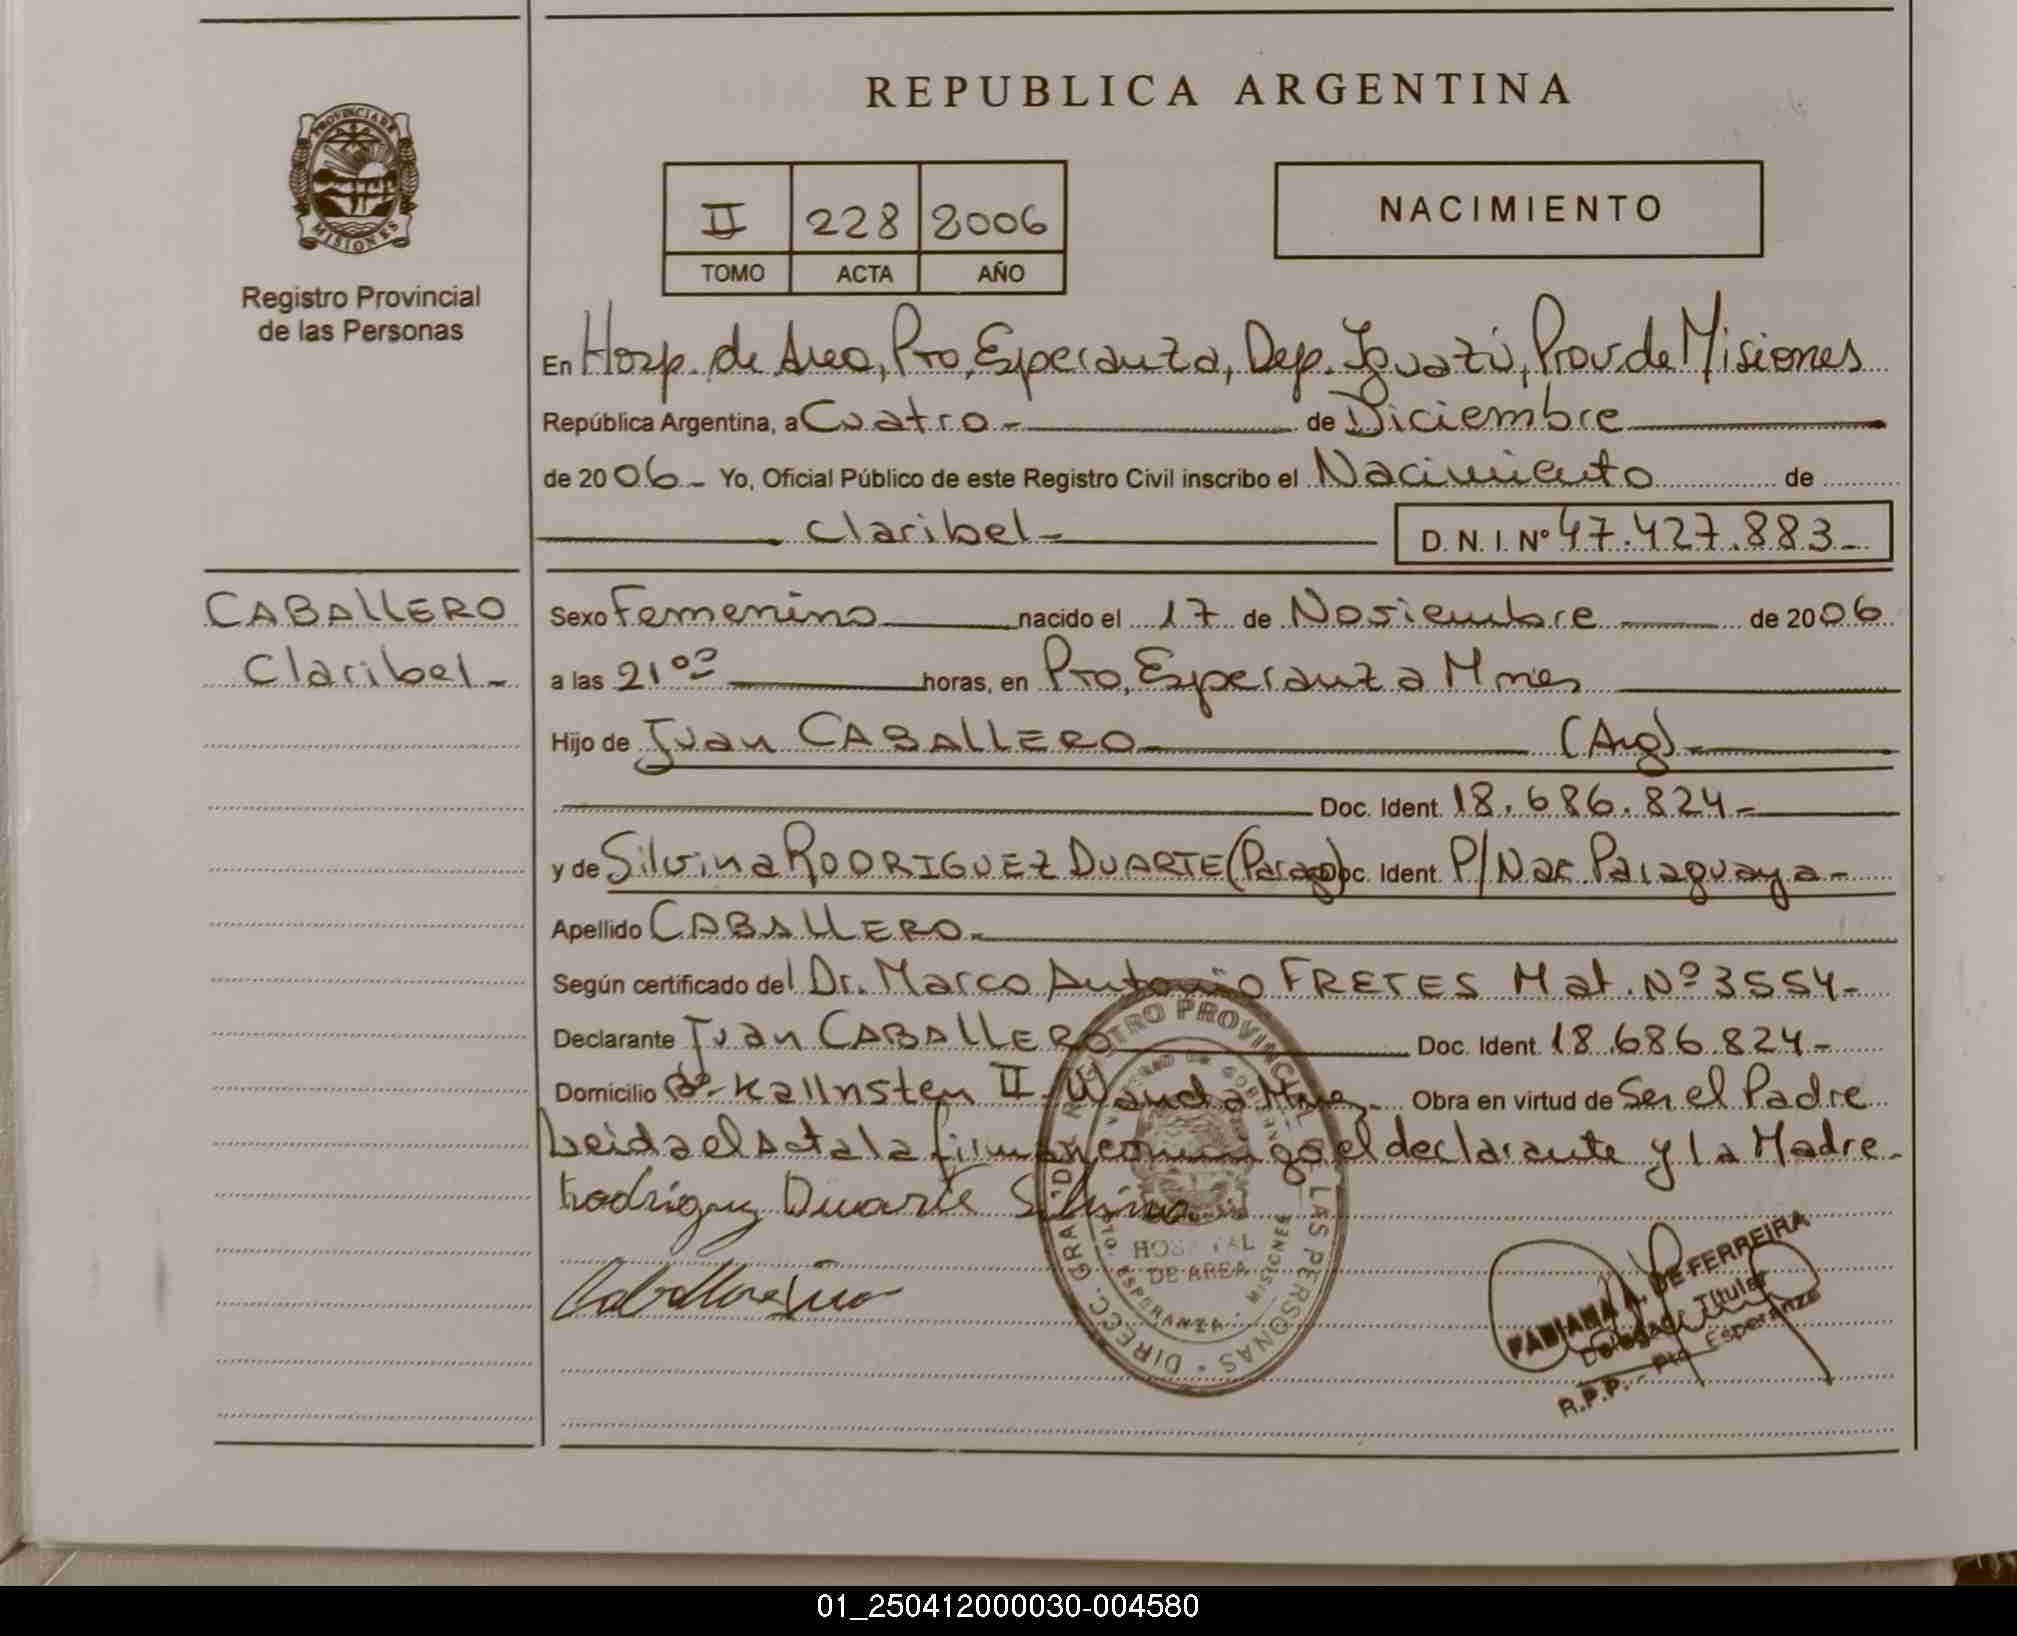 REPUBLICA ARGENTINA
PROVINCIA DE
MISIONES
Registro Provincial
de las Personas
II 228 2006
TOMO ACTA AÑO
NACIMIENTO
En Hosp. de Area, Pto. Esperanza, Dep. Iguazú, Prov. de Misiones
República Argentina, a Cuatro - de Diciembre
de 2006 - Yo, Oficial Público de este Registro Civil inscribo el Nacimiento de
Claribel - D. N. I. Nº 47.427.883 -
CABALLERO
Claribel -
Sexo Femenino nacido el 17 de Noviembre de 2006
a las 21 00 horas, en Pto. Esperanza Mnes
Hijo de Juan CABALLERO (Arg) -
Doc. Ident. 18.686.824 -
y de Silvina RODRIGUEZ DUARTE (Parag) Doc. Ident. P/Nac. Paraguaya -
Apellido CABALLERO -
Según certificado del Dr. Marco Antonio FRETES Mat. Nº 3554 -
Declarante Juan CABALLERO Doc. Ident. 18.686.824 -
Domicilio Bº Kallnsten II - Wanda Mnes - Obra en virtud de Ser el Padre
Leida el acta la firman conmigo el declarante y la Madre -
Rodriguez Duarte Silvina
Caballero Juan
DIRECC. GRAL. DEL REGISTRO PROVINCIAL DE LAS PERSONAS
HOSPITAL
DE AREA
PTO. ESPERANZA - MISIONES
FABIANA A. DE FERREIRA
Delegada Titular
R.P.P. - Pto. Esperanza
01_250412000030-004580